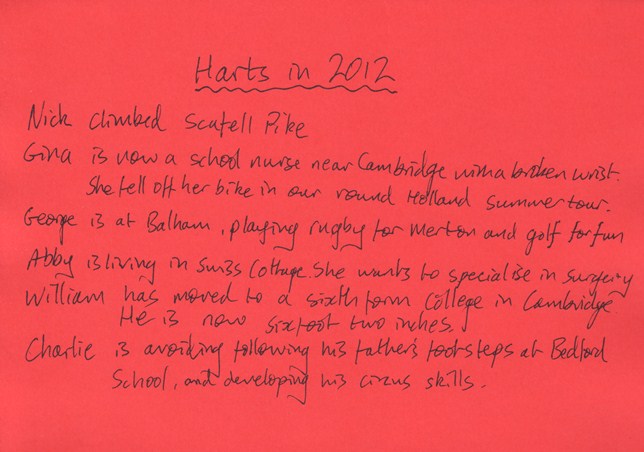 Harts in 2012
Nick climbed Scafell Pike
Gina is now a school nurse near Cambridge with a broken wrist.
She fell off her bike in our round Holland summer tour.
George is at Balham, playing rugby for Merton and golf for fun
Abby is living in Swiss Cottage. She wants to specialise in surgery
William has moved to a sixth form College in Cambridge.
He is now six foot two inches.
Charlie is avoiding following his father's footsteps at Bedford
School, and developing his circus skills.